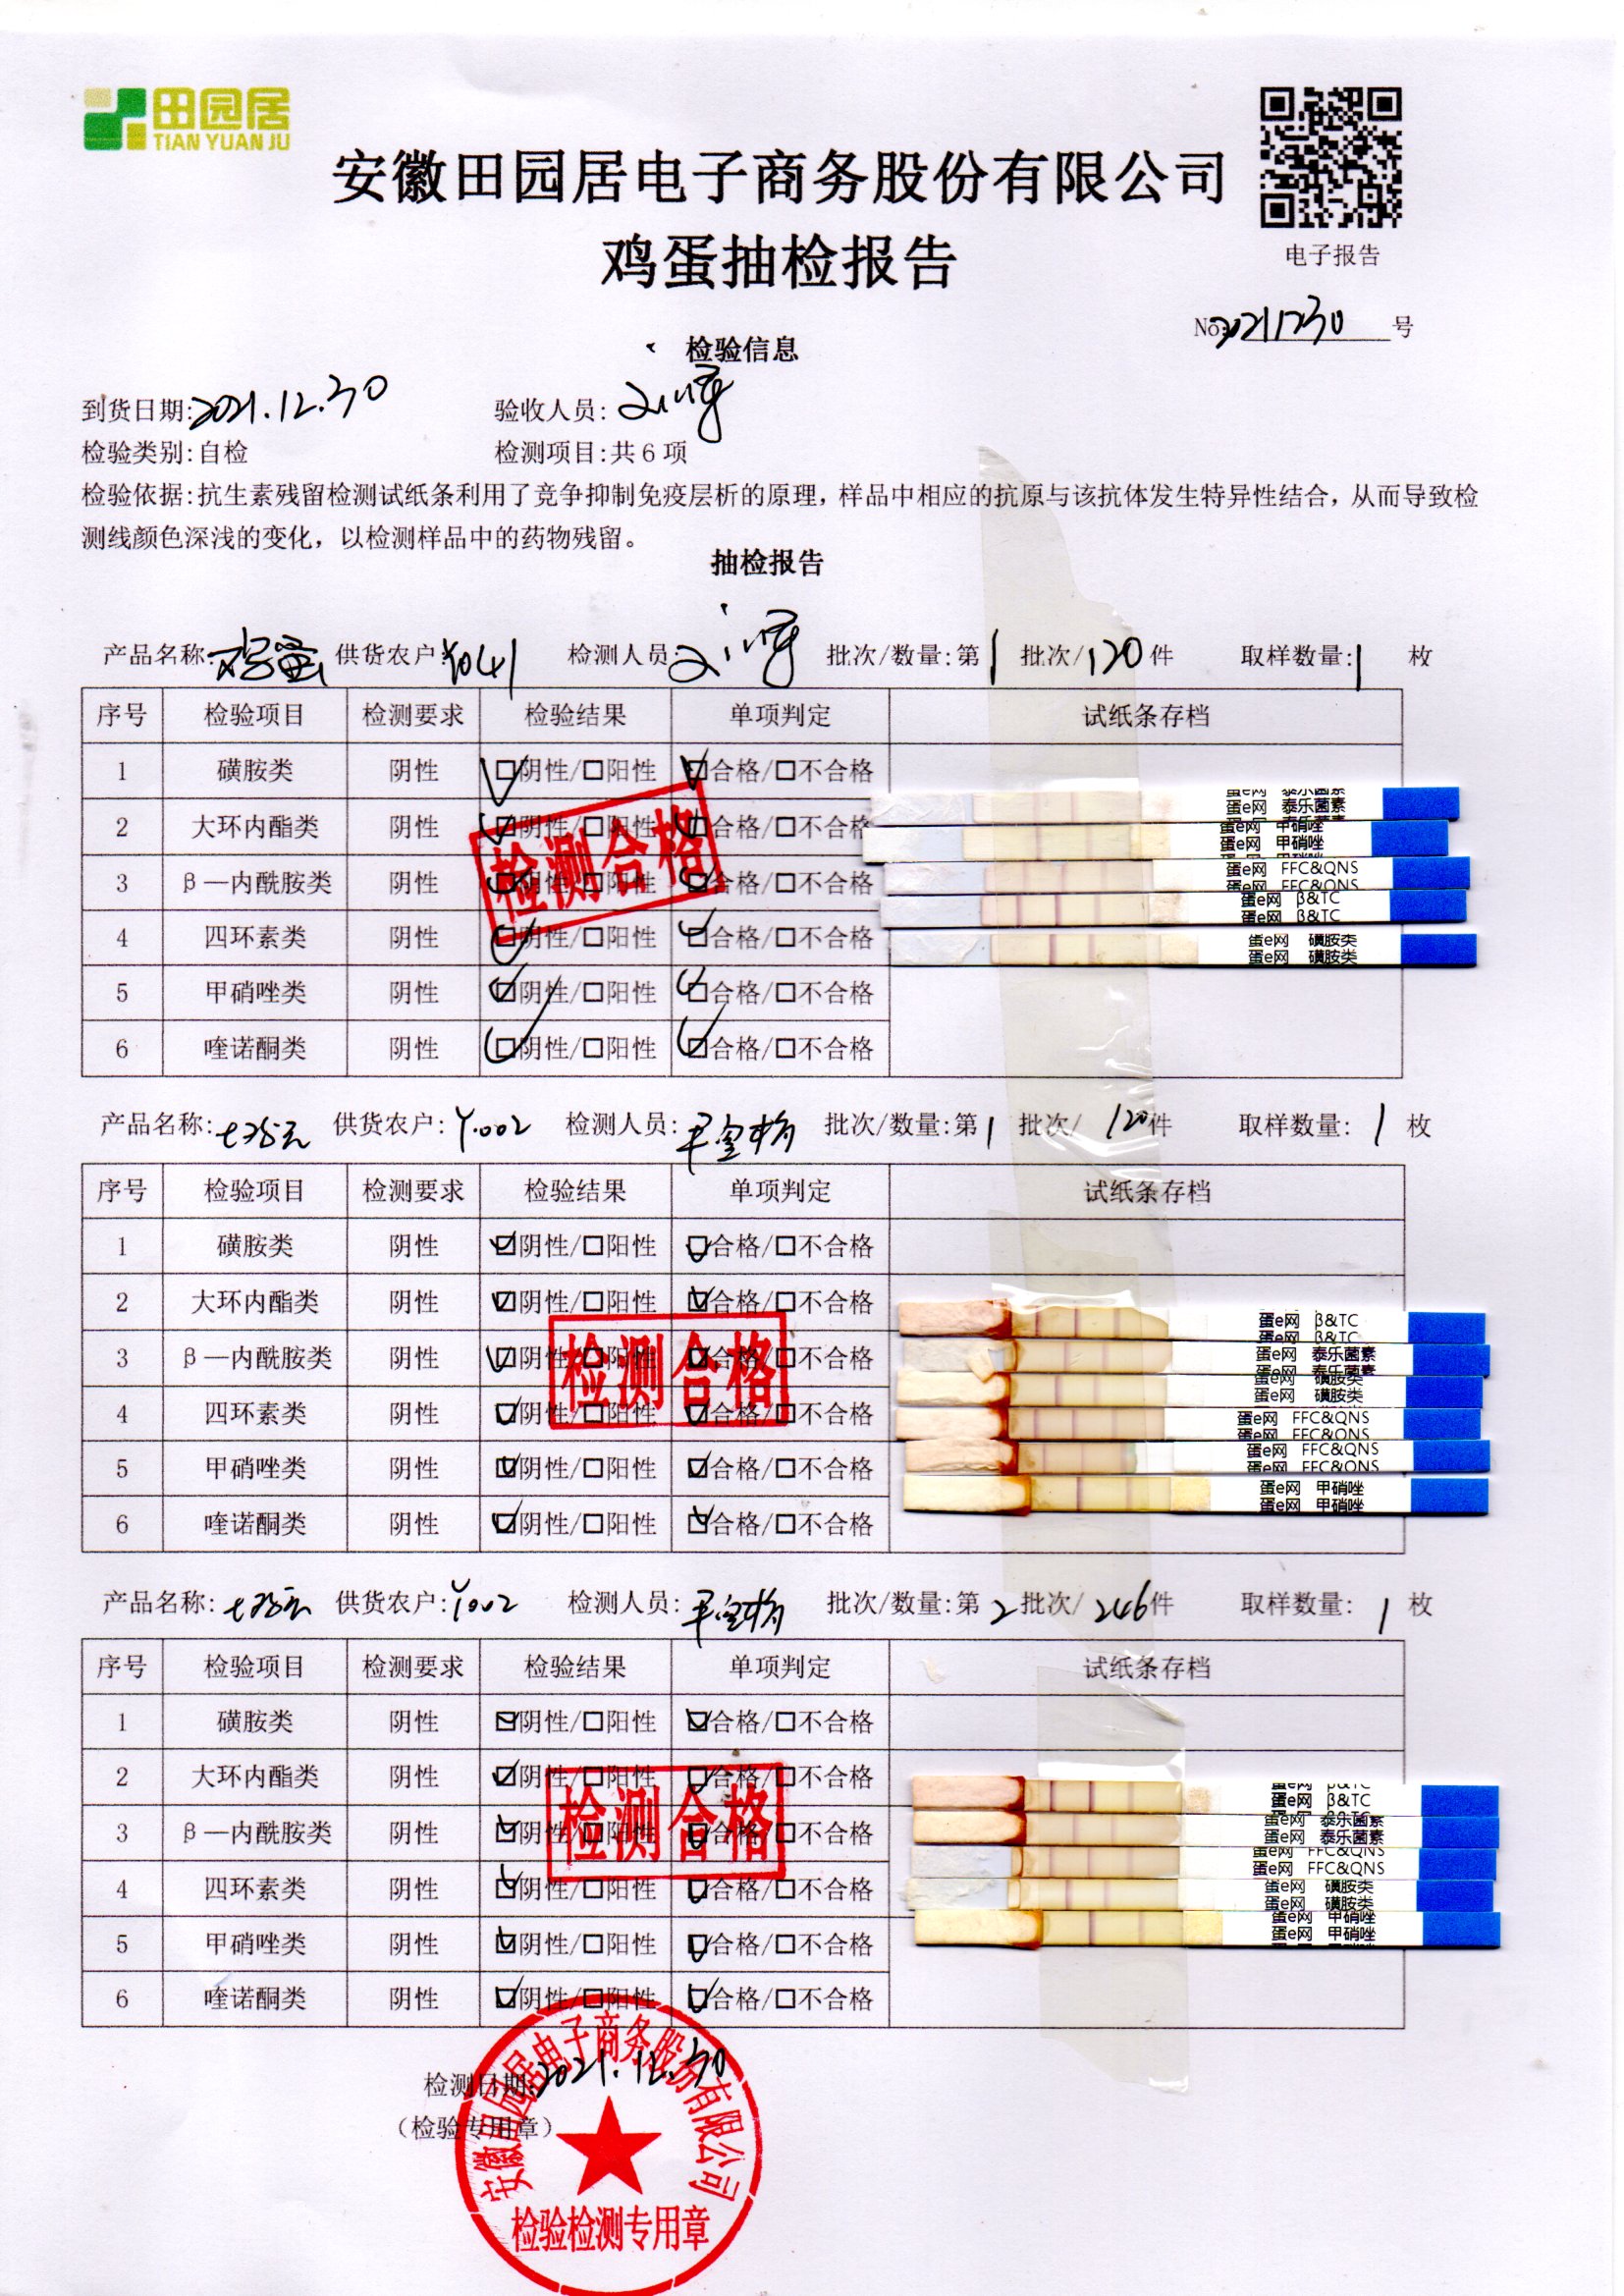 田园居
TIAN YUAN JU
安徽田园居电子商务股份有限公司
鸡蛋抽检报告
电子报告
No: 20211230 号
检验信息
到货日期: 2021.12.30 验收人员:
检验类别:自检 检测项目:共6项
检验依据:抗生素残留检测试纸条利用了竞争抑制免疫层析的原理,样品中相应的抗原与该抗体发生特异性结合,从而导致检
测线颜色深浅的变化,以检测样品中的药物残留。
抽检报告
产品名称: 鸡蛋 供货农户: Y041 检测人员: 批次/数量:第1批次/120件 取样数量:1枚
序号 检验项目 检测要求 检验结果 单项判定 试纸条存档
1 磺胺类 阴性 ☑阴性/☐阳性 ☑合格/☐不合格
2 大环内酯类 阴性 ☑阴性/☐阳性 ☑合格/☐不合格
3 β—内酰胺类 阴性 ☑阴性/☐阳性 ☑合格/☐不合格
4 四环素类 阴性 ☑阴性/☐阳性 ☑合格/☐不合格
5 甲硝唑类 阴性 ☑阴性/☐阳性 ☑合格/☐不合格
6 喹诺酮类 阴性 ☑阴性/☐阳性 ☑合格/☐不合格
检测合格
蛋e网 泰乐菌素
蛋e网 甲硝唑
蛋e网 FFC&QNS
蛋e网 β&TC
蛋e网 磺胺类
产品名称: 供货农户: Y.002 检测人员: 批次/数量:第1批次/120件 取样数量: 1枚
序号 检验项目 检测要求 检验结果 单项判定 试纸条存档
1 磺胺类 阴性 ☑阴性/☐阳性 ☑合格/☐不合格
2 大环内酯类 阴性 ☑阴性/☐阳性 ☑合格/☐不合格
3 β—内酰胺类 阴性 ☑阴性/☐阳性 ☑合格/☐不合格
4 四环素类 阴性 ☑阴性/☐阳性 ☑合格/☐不合格
5 甲硝唑类 阴性 ☑阴性/☐阳性 ☑合格/☐不合格
6 喹诺酮类 阴性 ☑阴性/☐阳性 ☑合格/☐不合格
检测合格
蛋e网 β&TC
蛋e网 泰乐菌素
蛋e网 磺胺类
蛋e网 FFC&QNS
蛋e网 FFC&QNS
蛋e网 甲硝唑
产品名称: 供货农户: Y002 检测人员: 批次/数量:第2批次/246件 取样数量: 1枚
序号 检验项目 检测要求 检验结果 单项判定 试纸条存档
1 磺胺类 阴性 ☑阴性/☐阳性 ☑合格/☐不合格
2 大环内酯类 阴性 ☑阴性/☐阳性 ☑合格/☐不合格
3 β—内酰胺类 阴性 ☑阴性/☐阳性 ☑合格/☐不合格
4 四环素类 阴性 ☑阴性/☐阳性 ☑合格/☐不合格
5 甲硝唑类 阴性 ☑阴性/☐阳性 ☑合格/☐不合格
6 喹诺酮类 阴性 ☑阴性/☐阳性 ☑合格/☐不合格
检测合格
蛋e网 β&TC
蛋e网 泰乐菌素
蛋e网 FFC&QNS
蛋e网 磺胺类
蛋e网 甲硝唑
检测日期: 2021.12.30
(检验专用章)
安徽田园居电子商务股份有限公司
检验检测专用章